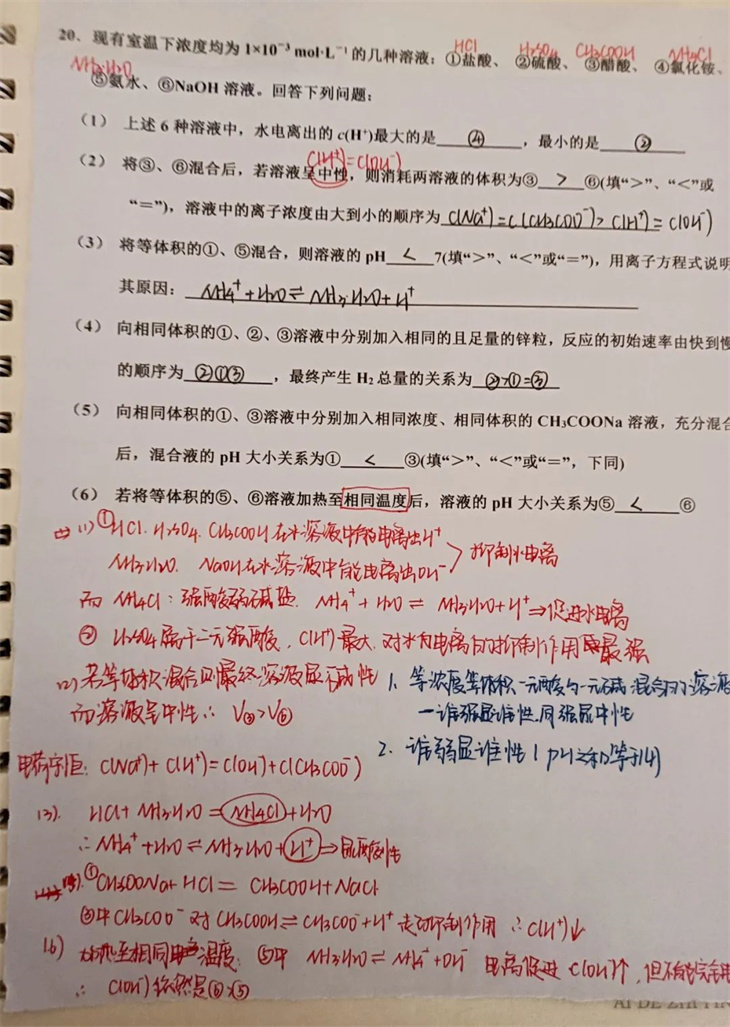 20. 现有室温下浓度均为 1×10⁻³ mol·L⁻¹ 的几种溶液：①盐酸、②硫酸、③醋酸、④氯化铵、
HCl H₂SO₄ CH₃COOH NH₄Cl
NH₃·H₂O
⑤氨水、⑥NaOH 溶液。回答下列问题：
（1） 上述 6 种溶液中，水电离出的 c(H⁺)最大的是 ④ ，最小的是 ②
c(H⁺)=c(OH⁻)
（2） 将③、⑥混合后，若溶液呈中性，则消耗两溶液的体积为③ > ⑥(填“>”、“<”或
“=”)，溶液中的离子浓度由大到小的顺序为 c(Na⁺)=c(CH₃COO⁻)>c(H⁺)=c(OH⁻)
（3） 将等体积的①、⑤混合，则溶液的 pH < 7(填“>”、“<”或“=”)，用离子方程式说明
其原因： NH₄⁺+H₂O⇌NH₃·H₂O+H⁺
（4） 向相同体积的①、②、③溶液中分别加入相同的且足量的锌粒，反应的初始速率由快到慢
的顺序为 ②①③ ，最终产生 H₂ 总量的关系为 ②>①=③
（5） 向相同体积的①、③溶液中分别加入相同浓度、相同体积的 CH₃COONa 溶液，充分混合
后，混合液的 pH 大小关系为① < ③(填“>”、“<”或“=”，下同)
（6） 若将等体积的⑤、⑥溶液加热至相同温度后，溶液的 pH 大小关系为⑤ < ⑥
(1) ①HCl. H₂SO₄. CH₃COOH 在水溶液中能电离出H⁺
NH₃·H₂O. NaOH在水溶液中能电离出OH⁻ > 抑制水电离
而 NH₄Cl：强酸弱碱盐. NH₄⁺+H₂O⇌NH₃·H₂O+H⁺⇒促进水电离
② H₂SO₄属于二元强酸，c(H⁺)最大. 对水电离的抑制作用最强
(2) 若等体积混合则最终溶液显碱性
而溶液呈中性∴ V③>V⑥
1、等浓度等体积一元酸与一元碱混合的溶液
一谁强显谁性，同强显中性
2、谁弱显谁性（pH之和等于14）
电荷守恒：c(Na⁺)+c(H⁺)=c(OH⁻)+c(CH₃COO⁻)
(3). HCl+NH₃·H₂O=NH₄Cl+H₂O
∴NH₄⁺+H₂O⇌NH₃·H₂O+H⁺⇒显酸性
(5).①CH₃COONa+HCl=CH₃COOH+NaCl
③中CH₃COO⁻对CH₃COOH⇌CH₃COO⁻+H⁺起动抑制作用 ∴c(H⁺)↓
(6) 加热至相同温度：⑤中 NH₃·H₂O⇌NH₄⁺+OH⁻ 电离促进 c(OH⁻)↑，但不能完全电
∴ c(OH⁻)依然是⑥>⑤